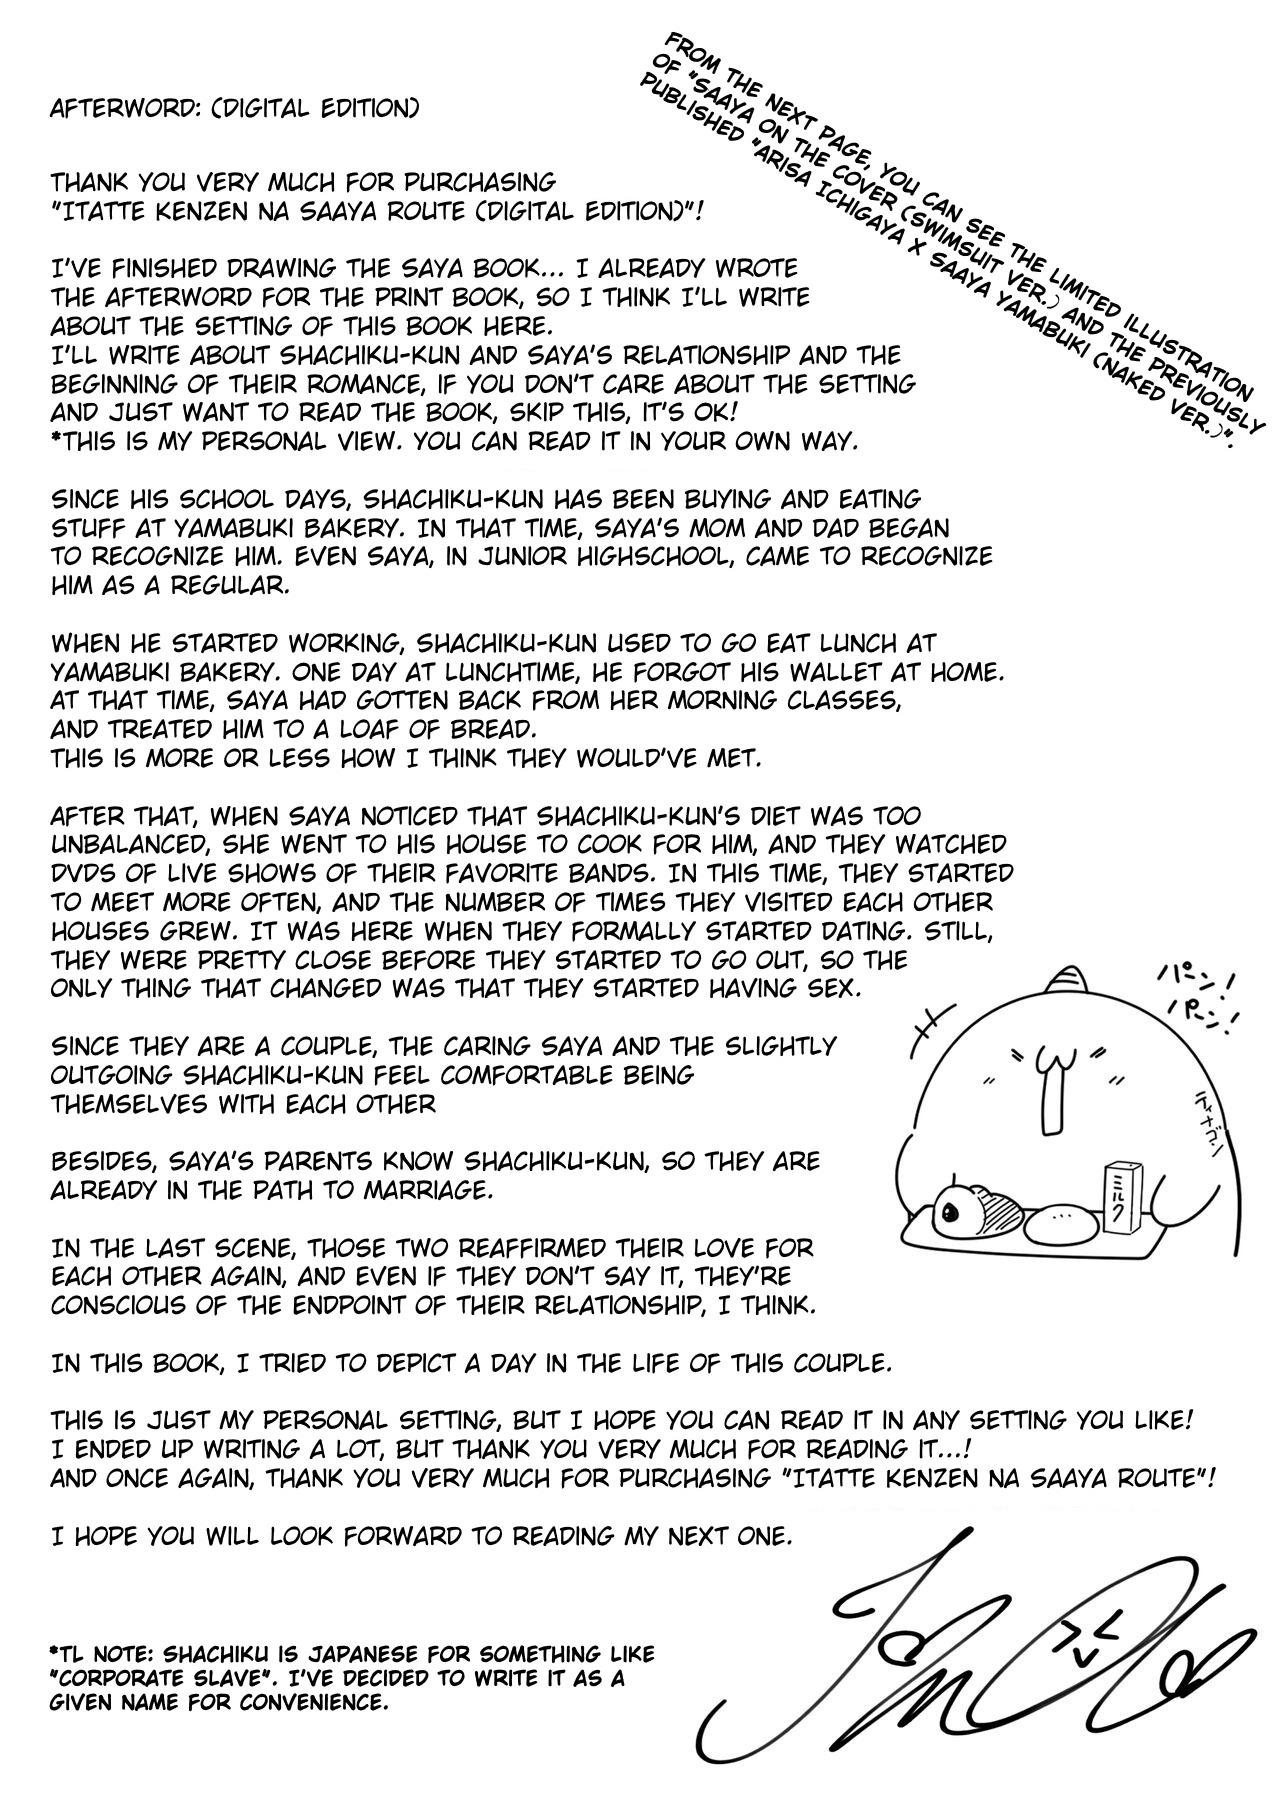 FROM THE NEXT PAGE, YOU CAN SEE THE LIMITED ILLUSTRATION
OF "SAAYA ON THE COVER (SWIMSUIT VER.) AND THE PREVIOUSLY
PUBLISHED "ARISA ICHIGAYA X SAAYA YAMABUKI (NAKED VER.)".
AFTERWORD: (DIGITAL EDITION)
THANK YOU VERY MUCH FOR PURCHASING
"ITATTE KENZEN NA SAAYA ROUTE (DIGITAL EDITION)"!
I'VE FINISHED DRAWING THE SAYA BOOK... I ALREADY WROTE
THE AFTERWORD FOR THE PRINT BOOK, SO I THINK I'LL WRITE
ABOUT THE SETTING OF THIS BOOK HERE.
I'LL WRITE ABOUT SHACHIKU-KUN AND SAYA'S RELATIONSHIP AND THE
BEGINNING OF THEIR ROMANCE, IF YOU DON'T CARE ABOUT THE SETTING
AND JUST WANT TO READ THE BOOK, SKIP THIS, IT'S OK!
*THIS IS MY PERSONAL VIEW. YOU CAN READ IT IN YOUR OWN WAY.
SINCE HIS SCHOOL DAYS, SHACHIKU-KUN HAS BEEN BUYING AND EATING
STUFF AT YAMABUKI BAKERY. IN THAT TIME, SAYA'S MOM AND DAD BEGAN
TO RECOGNIZE HIM. EVEN SAYA, IN JUNIOR HIGHSCHOOL, CAME TO RECOGNIZE
HIM AS A REGULAR.
WHEN HE STARTED WORKING, SHACHIKU-KUN USED TO GO EAT LUNCH AT
YAMABUKI BAKERY. ONE DAY AT LUNCHTIME, HE FORGOT HIS WALLET AT HOME.
AT THAT TIME, SAYA HAD GOTTEN BACK FROM HER MORNING CLASSES,
AND TREATED HIM TO A LOAF OF BREAD.
THIS IS MORE OR LESS HOW I THINK THEY WOULD'VE MET.
AFTER THAT, WHEN SAYA NOTICED THAT SHACHIKU-KUN'S DIET WAS TOO
UNBALANCED, SHE WENT TO HIS HOUSE TO COOK FOR HIM, AND THEY WATCHED
DVDS OF LIVE SHOWS OF THEIR FAVORITE BANDS. IN THIS TIME, THEY STARTED
TO MEET MORE OFTEN, AND THE NUMBER OF TIMES THEY VISITED EACH OTHER
HOUSES GREW. IT WAS HERE WHEN THEY FORMALLY STARTED DATING. STILL,
THEY WERE PRETTY CLOSE BEFORE THEY STARTED TO GO OUT, SO THE
ONLY THING THAT CHANGED WAS THAT THEY STARTED HAVING SEX.
SINCE THEY ARE A COUPLE, THE CARING SAYA AND THE SLIGHTLY
OUTGOING SHACHIKU-KUN FEEL COMFORTABLE BEING
THEMSELVES WITH EACH OTHER
BESIDES, SAYA'S PARENTS KNOW SHACHIKU-KUN, SO THEY ARE
ALREADY IN THE PATH TO MARRIAGE.
IN THE LAST SCENE, THOSE TWO REAFFIRMED THEIR LOVE FOR
EACH OTHER AGAIN, AND EVEN IF THEY DON'T SAY IT, THEY'RE
CONSCIOUS OF THE ENDPOINT OF THEIR RELATIONSHIP, I THINK.
IN THIS BOOK, I TRIED TO DEPICT A DAY IN THE LIFE OF THIS COUPLE.
THIS IS JUST MY PERSONAL SETTING, BUT I HOPE YOU CAN READ IT IN ANY SETTING YOU LIKE!
I ENDED UP WRITING A LOT, BUT THANK YOU VERY MUCH FOR READING IT...!
AND ONCE AGAIN, THANK YOU VERY MUCH FOR PURCHASING "ITATTE KENZEN NA SAAYA ROUTE"!
I HOPE YOU WILL LOOK FORWARD TO READING MY NEXT ONE.
パーン!
パーン!
ティナゴン
ミルク
*TL NOTE: SHACHIKU IS JAPANESE FOR SOMETHING LIKE
"CORPORATE SLAVE". I'VE DECIDED TO WRITE IT AS A
GIVEN NAME FOR CONVENIENCE.